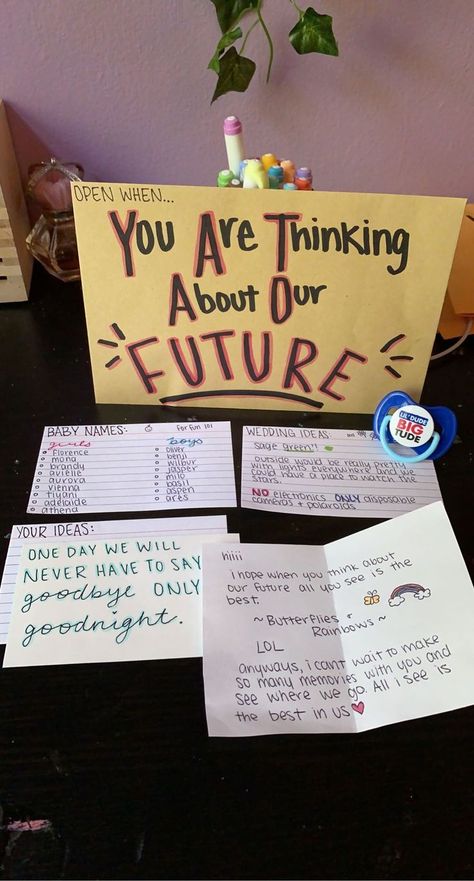 OPEN WHEN...
You Are Thinking
About Our
FUTURE
BABY NAMES: For fun lol
girls
Florence
mona
brandy
avielle
aurora
vienna
tiyani
adelaide
athena
boys
Oliver
benji
wilbur
jasper
milo
basil
aspen
ares
WEDDING IDEAS:
sage green!!
outside would be really pretty
with lights everywhere and we
could have a place to watch the
stars.
NO electronics ONLY disposable
cameras + polaroids
LIL' DUDE
BIG
TUDE
YOUR IDEAS:
ONE DAY WE WILL
NEVER HAVE TO SAY
goodbye ONLY
goodnight.
hiiii
i hope when you think about
our future all you see is the
best.
~ Butterflies +
Rainbows ~
LOL
anyways, i cant wait to make
so many memories with you and
see where we go. All i see is
the best in us